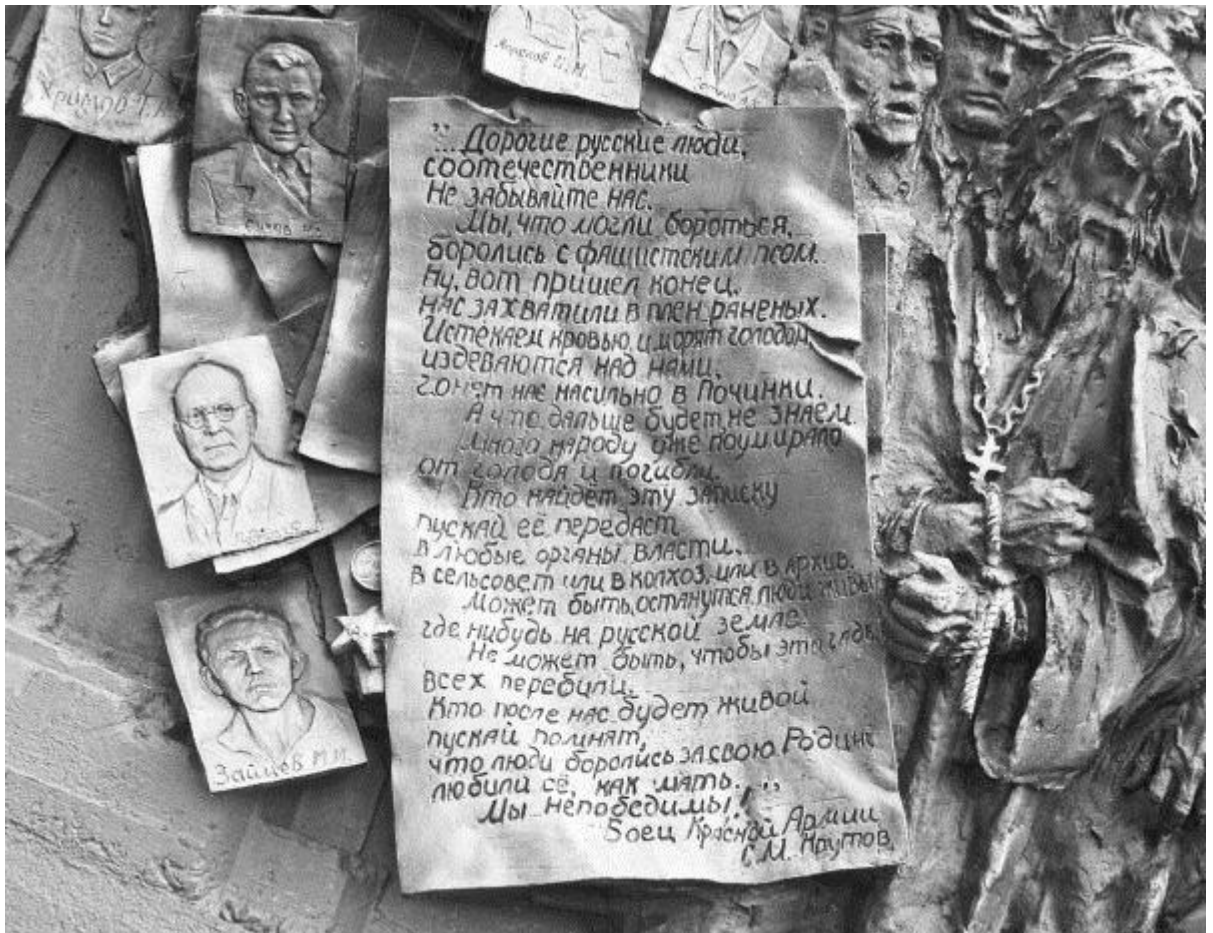 Зайцев М.И.
"...Дорогие русские люди,
соотечественники
Не забывайте нас.
Мы, что могли бороться,
боролись с фашистским псом.
Ну, вот пришел конец.
нас захватили в плен раненых.
Истекаем кровью и морят голодом,
издеваются над нами,
гонят нас насильно в Починки.
А что дальше будет, не знаем.
Много народу уже поумирало
от голода и погибли.
Кто найдет эту записку
пускай её передаст
в любые органы власти...
в сельсовет или в колхоз, или в архив.
Может быть, останутся люди живы
где нибудь на русской земле.
Не может быть, чтобы эта гадь
всех перебили.
Кто после нас будет живой
пускай помнят,
что люди боролись за свою Родину
любили её, как мать...
Мы непобедимы!
Боец Красной Армии
С.М. Крутов.